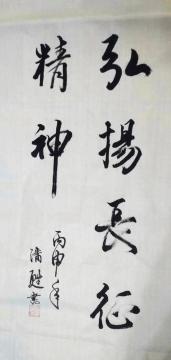 弘揚長征
精神
丙申年
潘
書